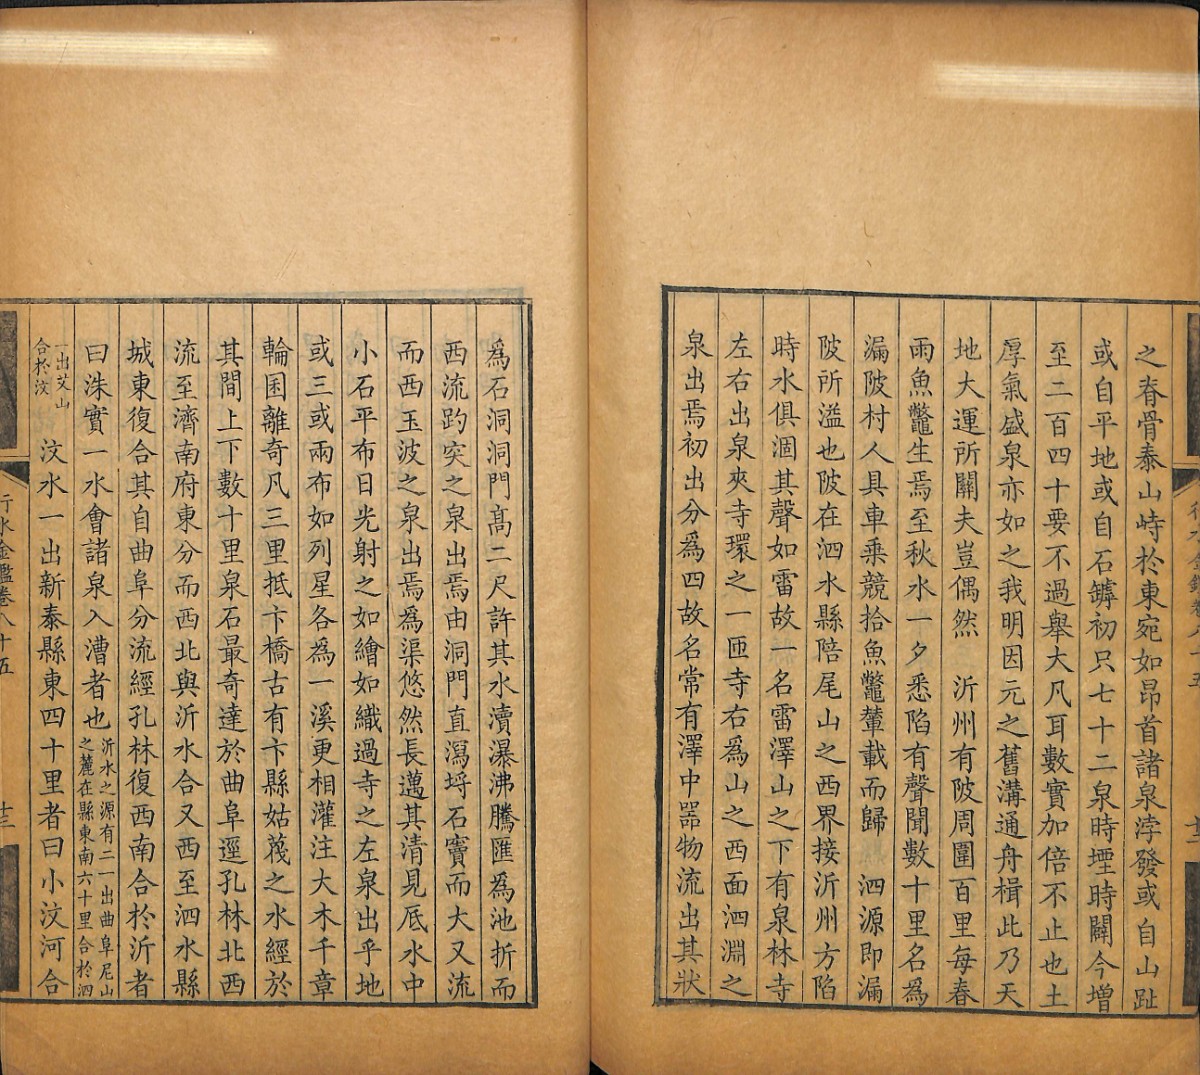 之脊骨泰山峙於東宛如昂首諸泉浡發或自山趾
或自平地或自石罅初只七十二泉時堙時闢今增
至二百四十要不過舉大凡耳數實加倍不止也土
厚氣盛泉亦如之我明因元之舊溝通舟楫此乃天
地大運所關夫豈偶然 沂州有陂周圍百里每春
雨魚鼈生焉至秋水一夕悉陷有聲聞數十里名為
漏陂村人具車乘競拾魚鼈輦載而歸 泗源即漏
陂所溢也陂在泗水縣陪尾山之西界接沂州方陷
時水俱涸其聲如雷故一名雷澤山之下有泉林寺
左右出泉夾寺環之一匝寺右為山之西面泗淵之
泉出焉初出分為四故名常有澤中器物流出其狀
為石洞洞門高二尺許其水濆瀑沸騰匯為池折而
西流趵突之泉出焉由洞門直瀉埒石竇而大又流
而西玉波之泉出焉為渠悠然長邁其清見底水中
小石平布日光射之如繪如織過寺之左泉出乎地
或三或兩布如列星各為一溪更相灌注大木千章
輪囷離奇凡三里抵卞橋古有卞縣姑蔑之水經於
其間上下數十里泉石最奇達於曲阜逕孔林北西
流至濟南府東分而西北與沂水合又西至泗水縣
城東復合其自曲阜分流經孔林復西南合於沂者
曰洙實一水會諸泉入漕者也沂水之源有二一出曲阜尼山之麓在縣東南六十里合於泗
一出艾山合於汶 汶水一出新泰縣東四十里者曰小汶河合
行水金鑑卷八十五
十三